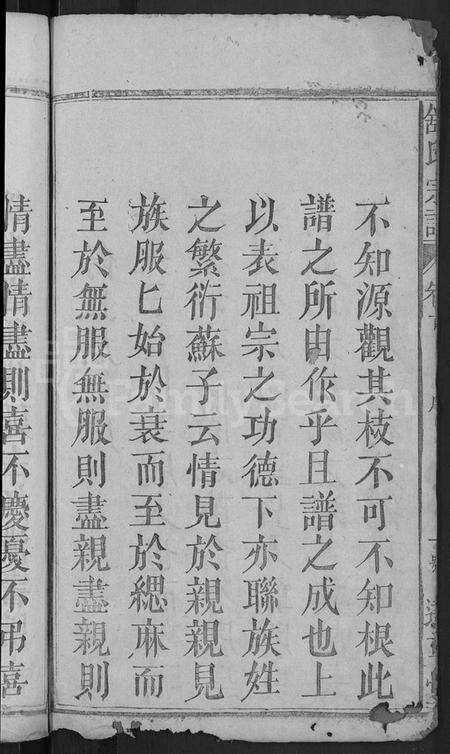 不知源觀其枝不可不知根此
譜之所由作乎且譜之成也上
以表祖宗之功德下亦聯族姓
之繁衍蘇子云情見於親親見
族服匕始於衰而至於緦麻而
至於無服無服則盡親盡親則
情盡情盡則喜不慶憂不吊喜
氏宗譜
FamilySearch